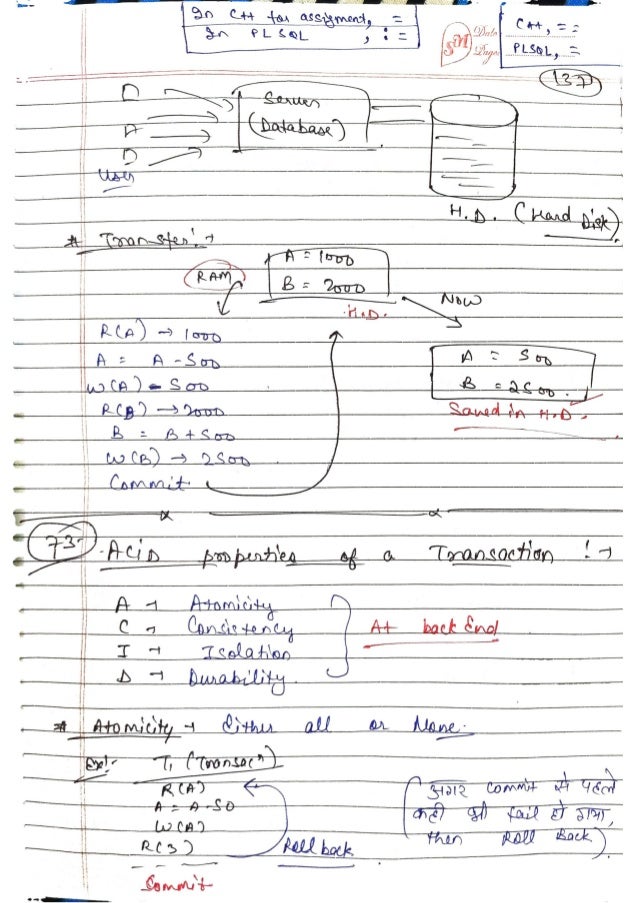 In C++ for assigment, =
In PLSQL , : =
C++, = =
PLSQL, =
SM
Date
Page
137
Server
(Database)
User
H.D. (Hard Disk)
# Transfer:→
RAM
A = 1000
B = 2000
H.D.
Now
R(A) → 1000
A = A - 500
W(A) - 500
R(B) → 2000
B = B + 500
W(B) → 2500
Commit
A = 500
B = 2500.
Saved in H.D.
73. ACID properties of a Transaction !→
A → Atomicity
C → Consistency
I → Isolation
D → Durability
At back End
* Atomicity → Either all or None.
Ex:- T1 (Transacⁿ)
R(A)
A = A - 50
W(A)
R(3)
Roll back
Commit
(अगर commit से पहले
कही भी fail हो गया,
then Roll Back)